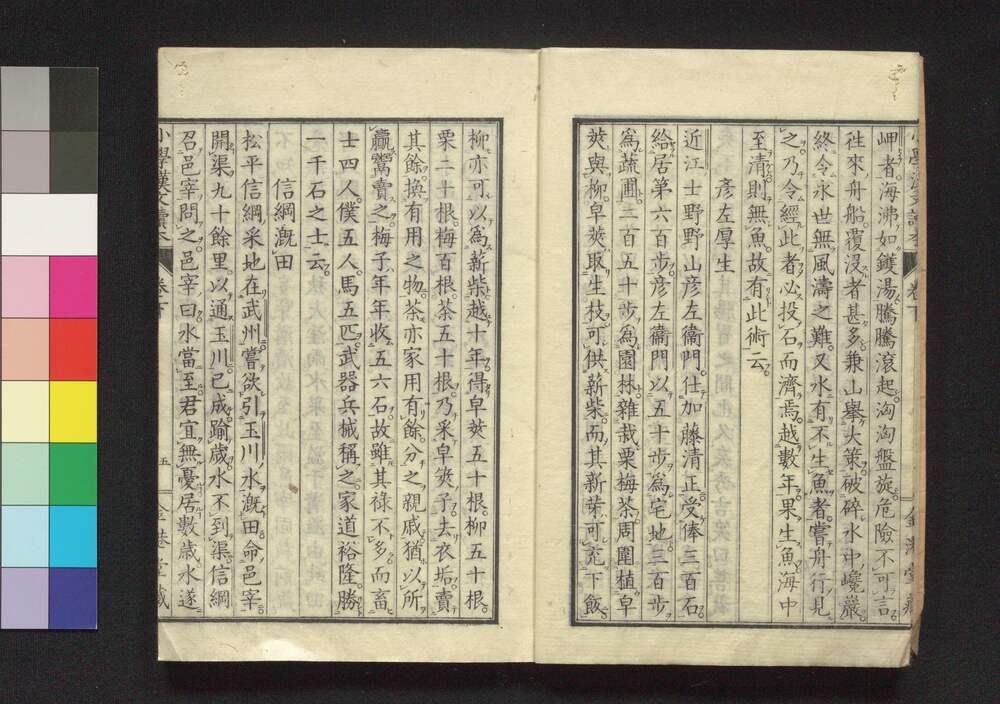 岬者海沸如鑊湯騰騰滾起洶洶盤旋危險不可言
徃來舟船覆沒者甚多兼山擧大策破碎水中巉巖
終令永世無風濤之難又水有不生魚者嘗舟行見
之乃令經此者必投石而濟焉越數年果生魚海中
至清則無魚故有此術云
彥左厚生
近江士野野山彥左衞門仕加藤清正受俸三百石
給居第六百步彥左衞門以五十步爲宅地三百步
爲蔬圃二百五十步爲園林雜栽栗梅茶周圍植皁
莢與柳皁莢取生枝可供薪柴而其新芽可充下飯
柳亦可以爲薪柴越十年得皁莢五十根柳五十根
栗二十根梅百根茶五十根乃采皁莢子去衣垢賣
其餘換有用之物茶亦家用有餘分之親戚猶以所
贏鬻賣之梅子年年收五六石故雖其祿不多而畜
士四人僕五人馬五匹武器兵械稱之家道裕隆勝
一千石之士云
信綱漑田
松平信綱采地在武州嘗欲引玉川水漑田命邑宰
開渠九十餘里以通玉川已成踰歲水不到渠信綱
召邑宰問之邑宰曰水當至君宜無憂居數歲水遂
小學漢文讀本 卷下 五